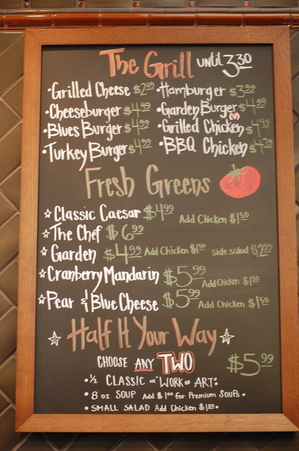 The Grill until 3:30
·Grilled Cheese $2.99 ·Hamburger $3.99
·Cheeseburger $4.99 ·Garden Burger $4.99
·Blues Burger $4.99 ·Grilled Chicken $4.49
·Turkey Burger $4.99 ·BBQ Chicken $4.79
Fresh Greens
☆Classic Caesar $4.99 Add Chicken $1.50
☆The Chef $6.99
☆Garden $4.99 Add Chicken $1.50 Side salad $2.00
☆Cranberry Mandarin $5.99 Add Chicken $1.50
☆Pear & Blue Cheese $5.99 Add Chicken $1.50
☆Half It Your Way☆
CHOOSE ANY TWO $5.99
·½ CLASSIC or "WORK of ART"
·8 oz SOUP Add $1.00 for Premium SOUPs·
·SMALL SALAD Add Chicken $1.50·